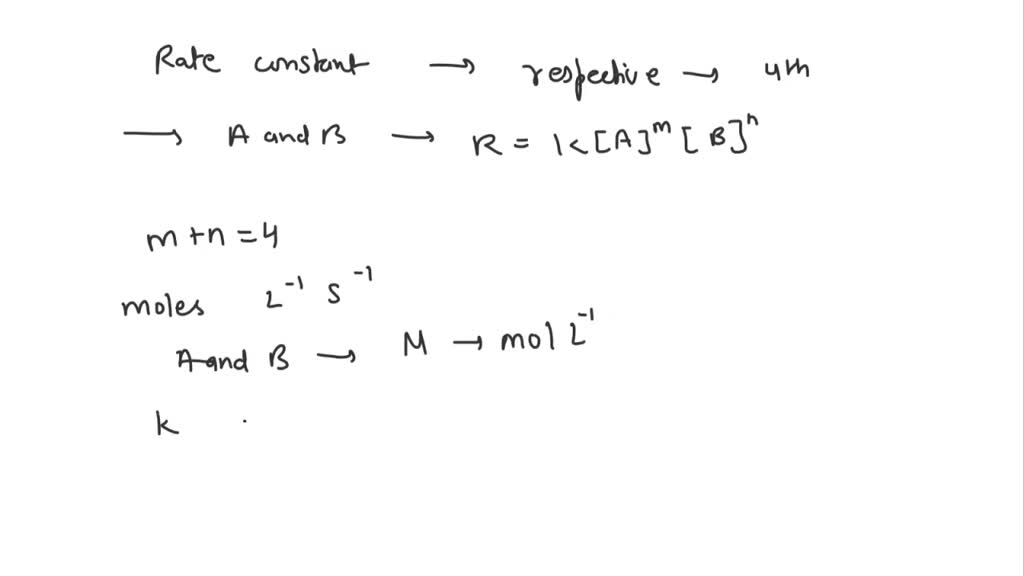 Rate constant → respective → 4th
→ A and B → R = k[A]^m [B]^n
m + n = 4
moles L^-1 S^-1
A and B → M → mol L^-1
k .